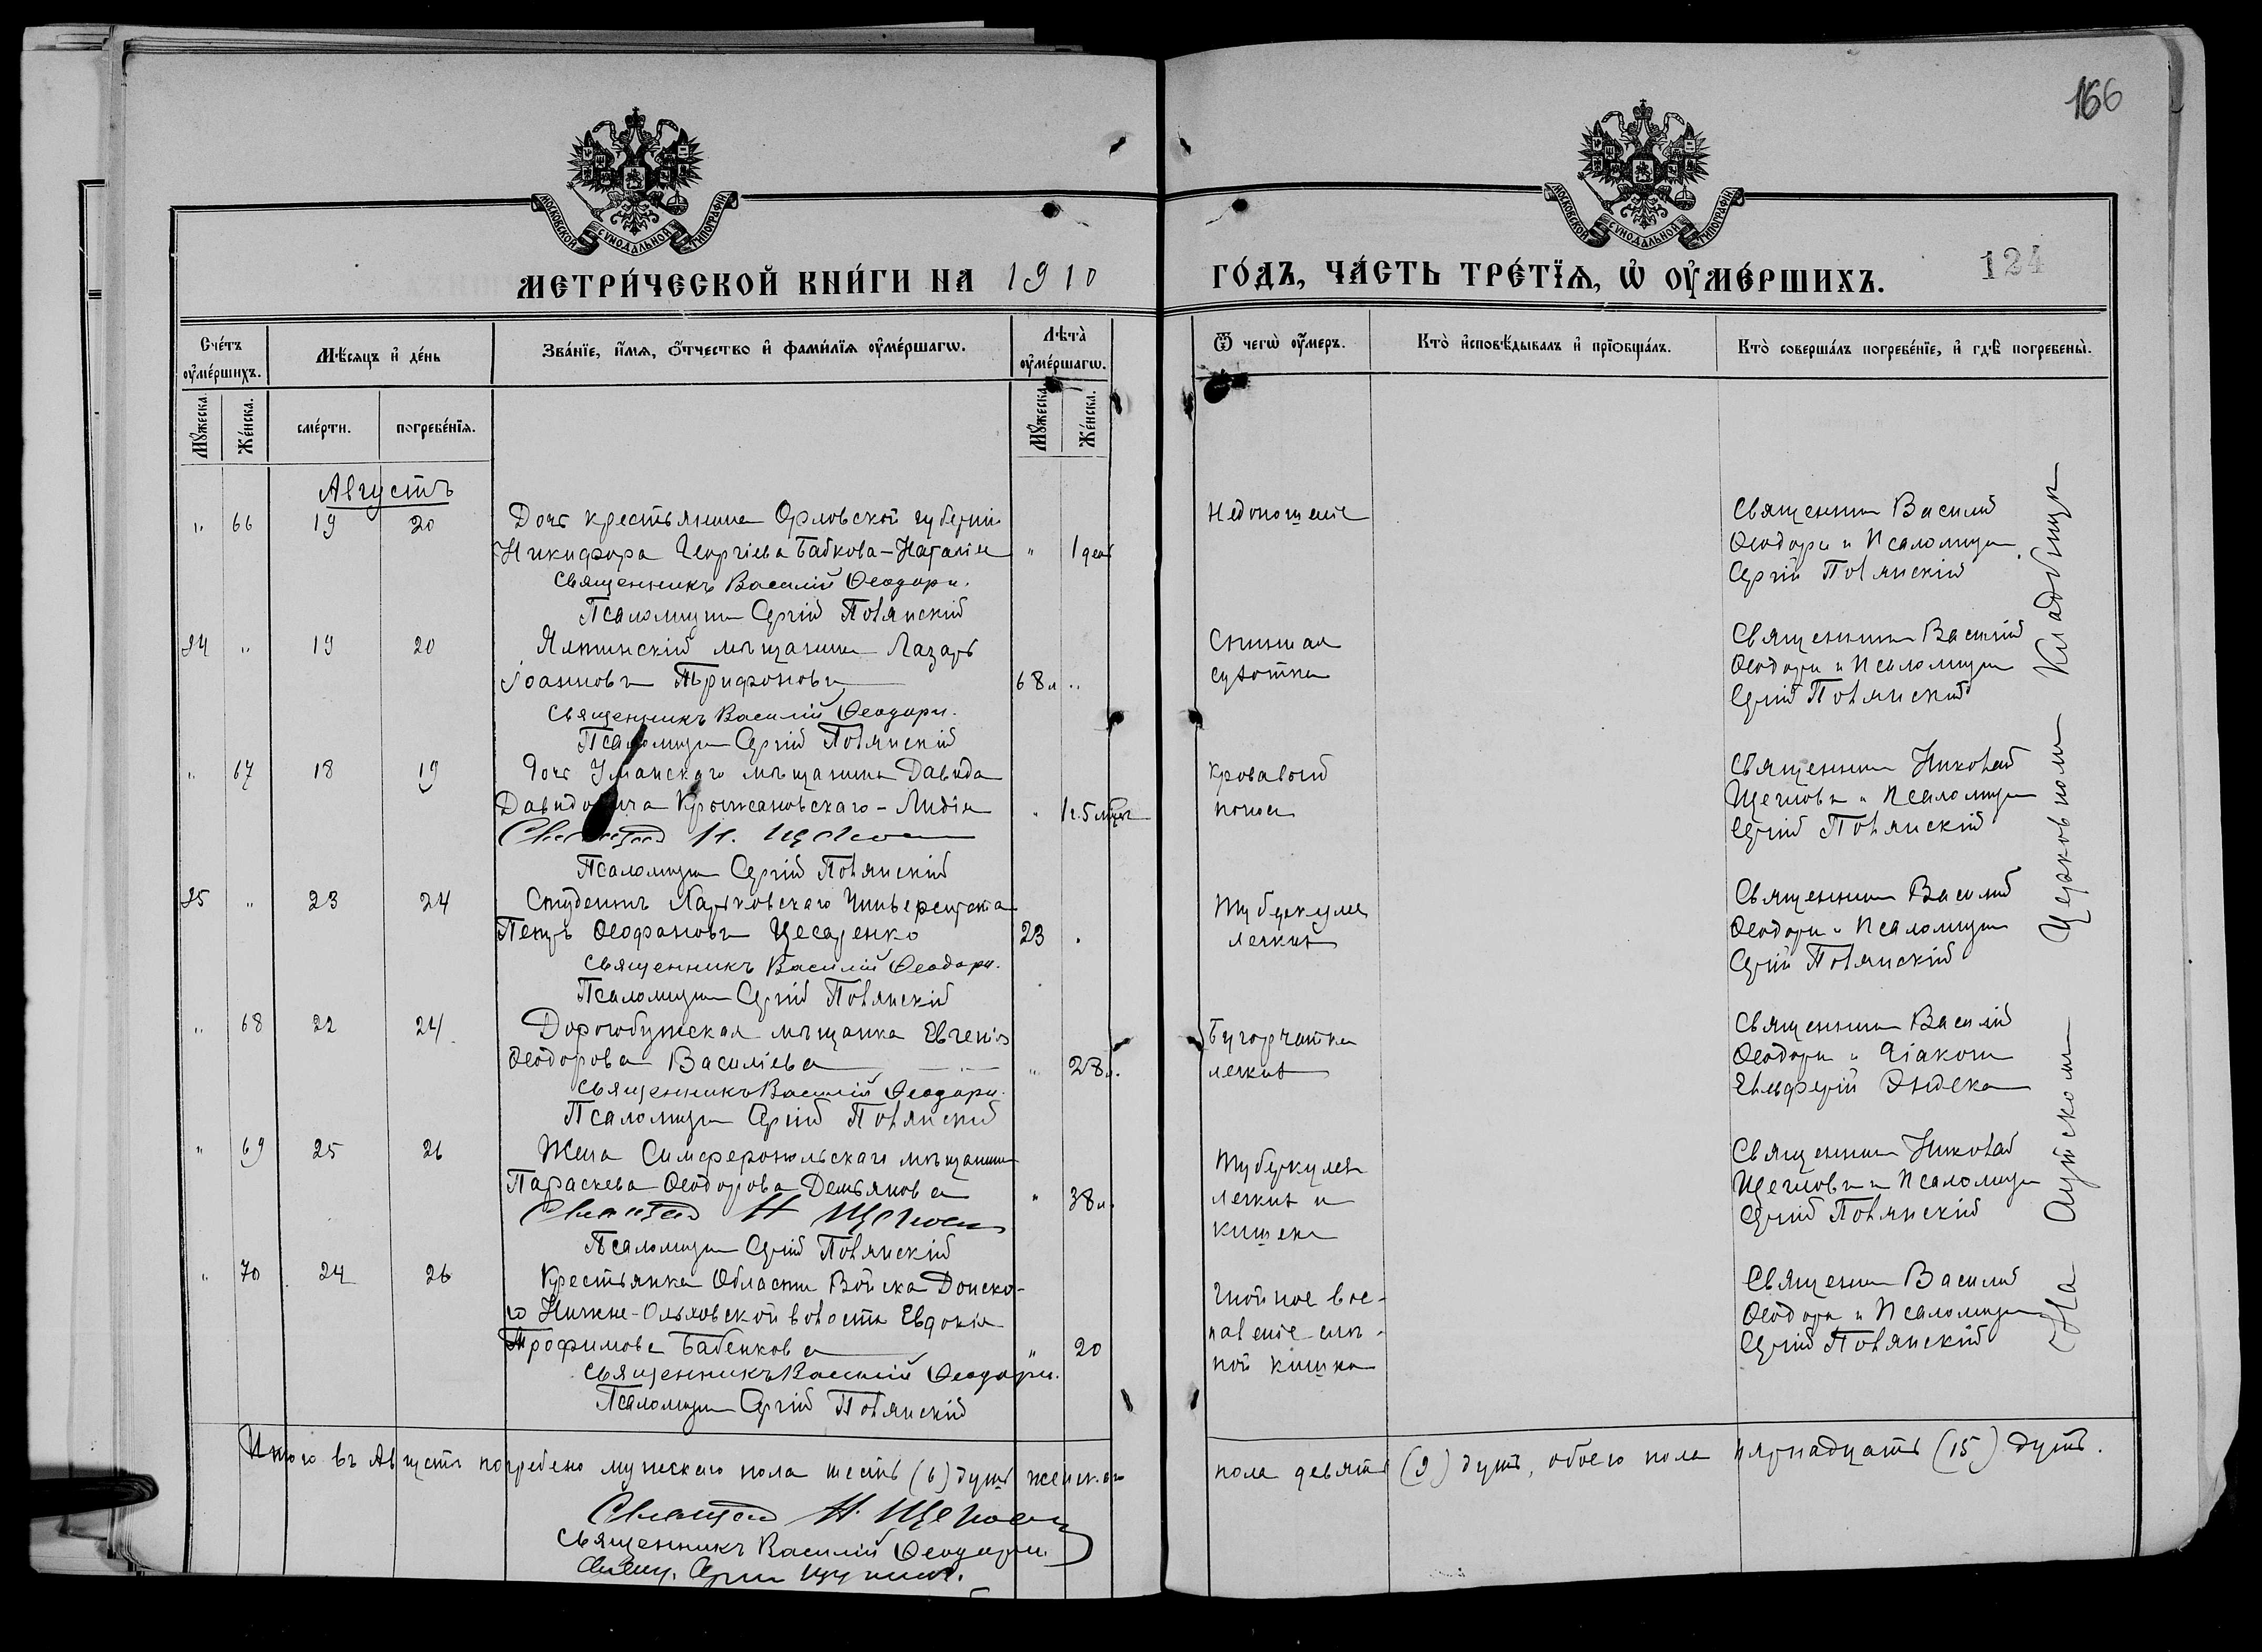 166
МОСКОВСКОЙ СУНОДАЛЬНОЙ ТИПОГРАФІИ
МОСКОВСКОЙ СУНОДАЛЬНОЙ ТИПОГРАФІИ
МЕТРИ́ЧЕСКОЙ КНИ́ГИ НА 1910
ГО́ДЪ, ЧА́СТЬ ТРЕ́ТЇѦ, Ѡ҆ ОУ҆МЕ́РШИХЪ.
124
Сче́тъ оу҆ме́ршихъ.
Мꙋ́жеска.
Же́нска.
Мѣ́сяцъ и҆ де́нь
сме́рти.
погребе́нїѧ.
Зва́нїе, и҆́мѧ, ѻ҆́тчество и҆ фами́лїѧ оу҆ме́ршагѡ.
Лѣта̀ оу҆ме́ршагѡ.
Мꙋ́жеска.
Же́нска.
Ѿ чегѡ̀ оу҆́меръ.
Кто̀ и҆сповѣ́дывалъ и҆ прїѡбща́лъ.
Кто̀ соверша́лъ погребе́нїе, и҆ гдѣ̀ погребены̀.
Августъ
" 66 19 20 Дочь крестьянина Орловской губерніи
Никифора Георгіева Бабкова - Наталія " 1 дня
Священникъ Василій Ѳеодори.
Псаломщикъ Сергій Полянскій
Недоношеніе
Священникъ Василій
Ѳеодори и Псаломщикъ
Сергій Полянскій
24 " 19 20 Ялтинскій мѣщанинъ Лазарь
Іоанновъ Трифоновъ 68 л "
Священникъ Василій Ѳеодори.
Псаломщикъ Сергій Полянскій
Спинная
сухотка
Священникъ Василій
Ѳеодори и Псаломщикъ
Сергій Полянскій
" 67 18 19 Дочь Уманскаго мѣщанина Давида
Давидовича Крыжановскаго - Лидія " 1 г. 5 мѣс
Священ Н. Щегловъ
Псаломщикъ Сергій Полянскій
Кровавый
поносъ
Священникъ Николай
Щегловъ и Псаломщикъ
Сергій Полянскій
25 " 23 24 Студентъ Харьковскаго Университета
Петръ Ѳеофановъ Цесаренко 23
Священникъ Василій Ѳеодори.
Псаломщикъ Сергій Полянскій
Туберкулез
легкихъ
Священникъ Василій
Ѳеодори и Псаломщикъ
Сергій Полянскій
" 68 22 24 Дорогобужская мѣщанка Евгенія
Ѳеодорова Васильева " 28 л.
Священникъ Василій Ѳеодори.
Псаломщикъ Сергій Полянскій
Бугорчатка
легкихъ
Священникъ Василій
Ѳеодори и Діаконъ
" 69 25 26 Жена Симферопольскаго мѣщанина
Параскева Ѳеодорова Демьянова " 38 л.
Священ Н Щегловъ
Псаломщикъ Сергій Полянскій
Туберкулез
легкихъ и
кишекъ
Священникъ Николай
Щегловъ и Псаломщикъ
Сергій Полянскій
" 70 24 26 Крестьянка Области Войска Донско-
го Нижне-Ольховской волости Евдокія
Трофимова Бабенкова " 20
Священникъ Василій Ѳеодори.
Псаломщикъ Сергій Полянскій
Гнойное вос-
паленіе слѣ-
пой кишки
Священникъ Василій
Ѳеодори и Псаломщикъ
Сергій Полянскій
На Аутскомъ Церковномъ Кладбищѣ
Итого въ Августѣ погребено мужескаго пола шесть (6) душъ женскаго
пола девять (9) душъ, обоего пола пятнадцать (15) душъ.
Священ Н. Щегловъ
Священникъ Василій Ѳеодори.
Свящ. Сергій Щукинъ.